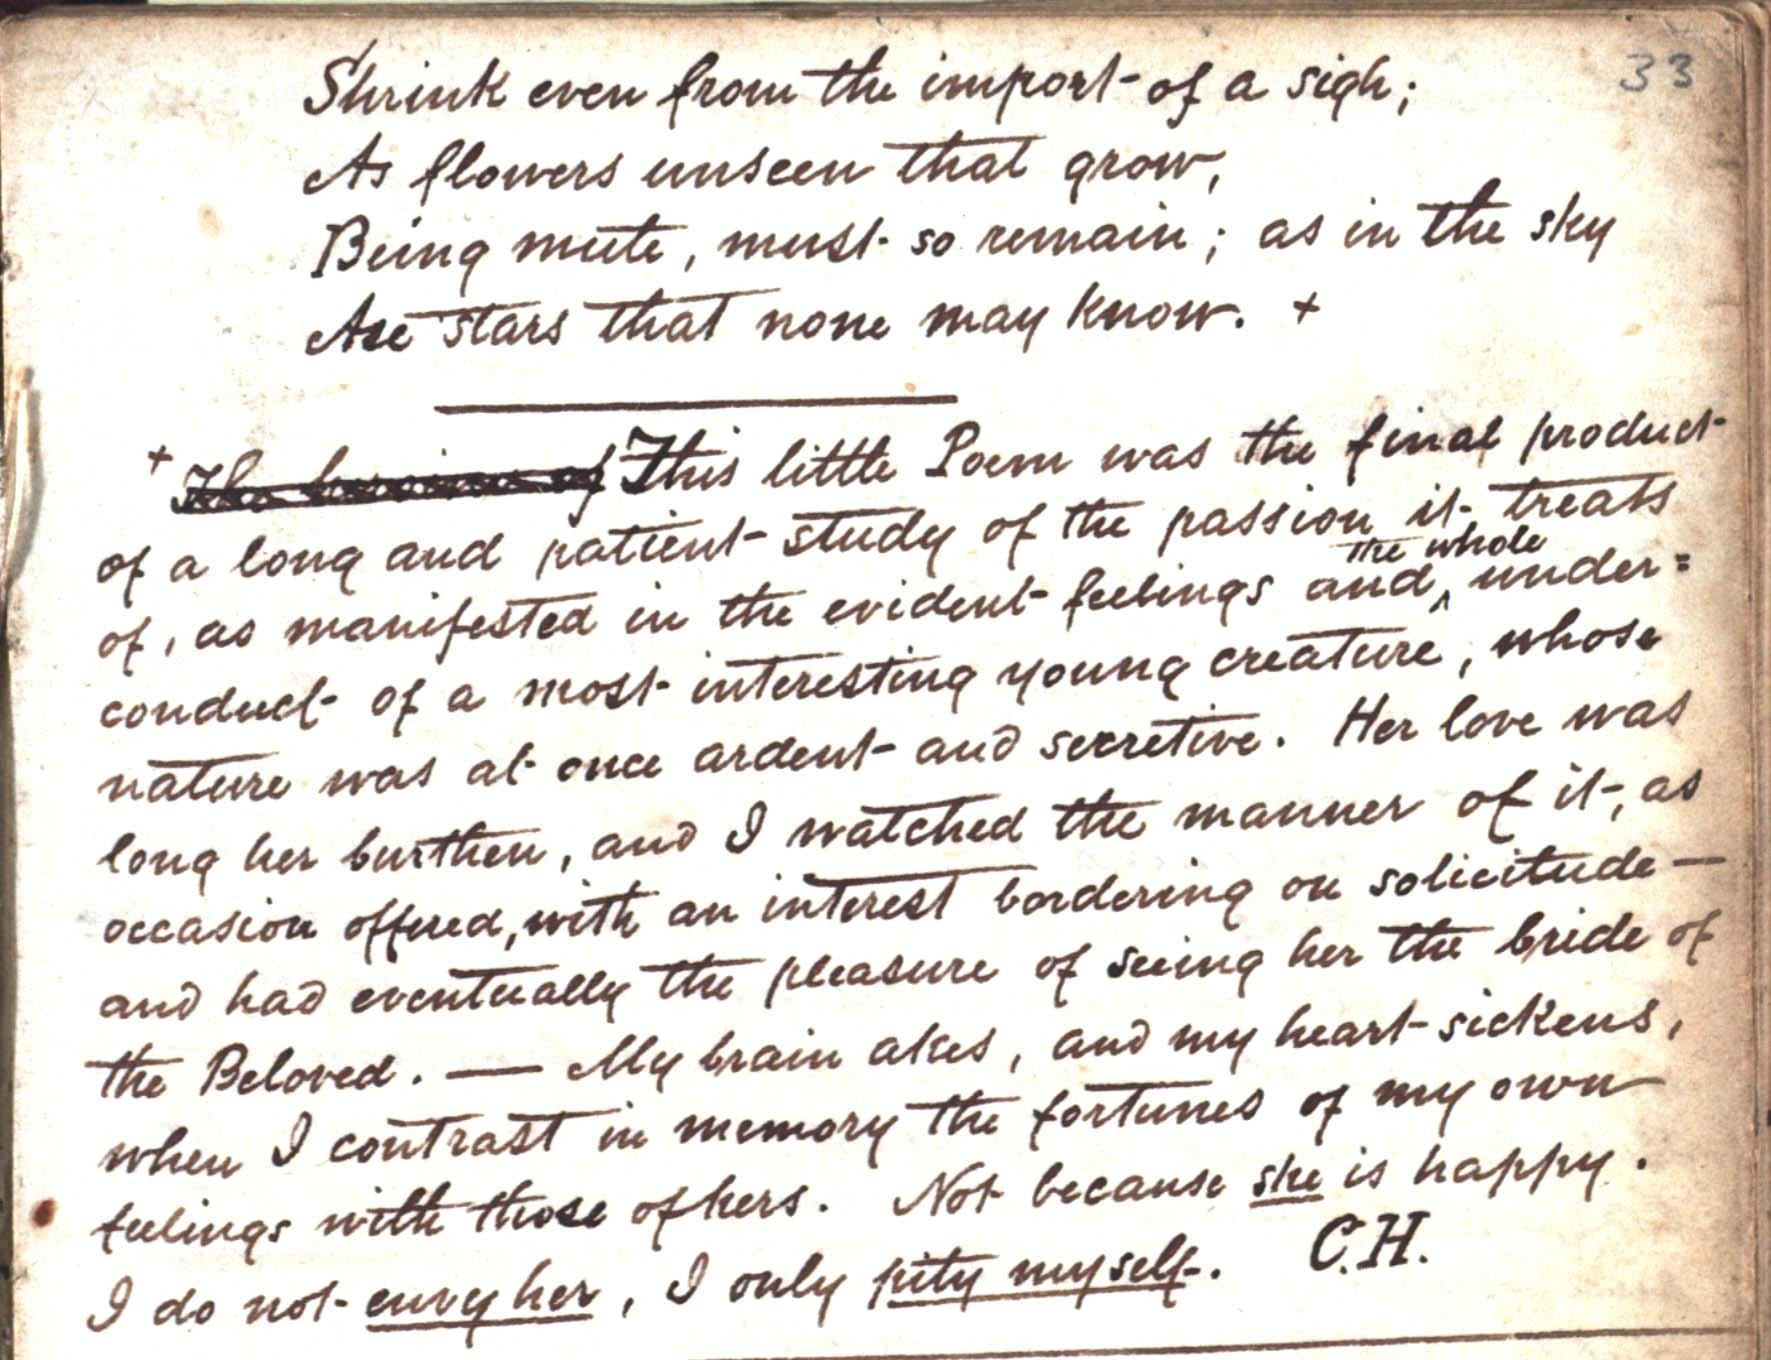 33
Shrink even from the import of a sigh;
As flowers unseen that grow,
Being mute, must so remain; as in the sky
Are stars that none may know. +
+ The heroine of This little Poem was the final product
of a long and patient study of the passion it treats
of, as manifested in the evident feelings and the whole under=
conduct of a most interesting young creature, whose
nature was at once ardent and secretive. Her love was
long her burthen, and I watched the manner of it, as
occasion offered, with an interest bordering on solicitude —
and had eventually the pleasure of seeing her the bride of
the Beloved. — My brain akes, and my heart sickens,
when I contrast in memory the fortunes of my own
feelings with those of hers. Not because she is happy.
I do not envy her, I only pity myself. C.H.